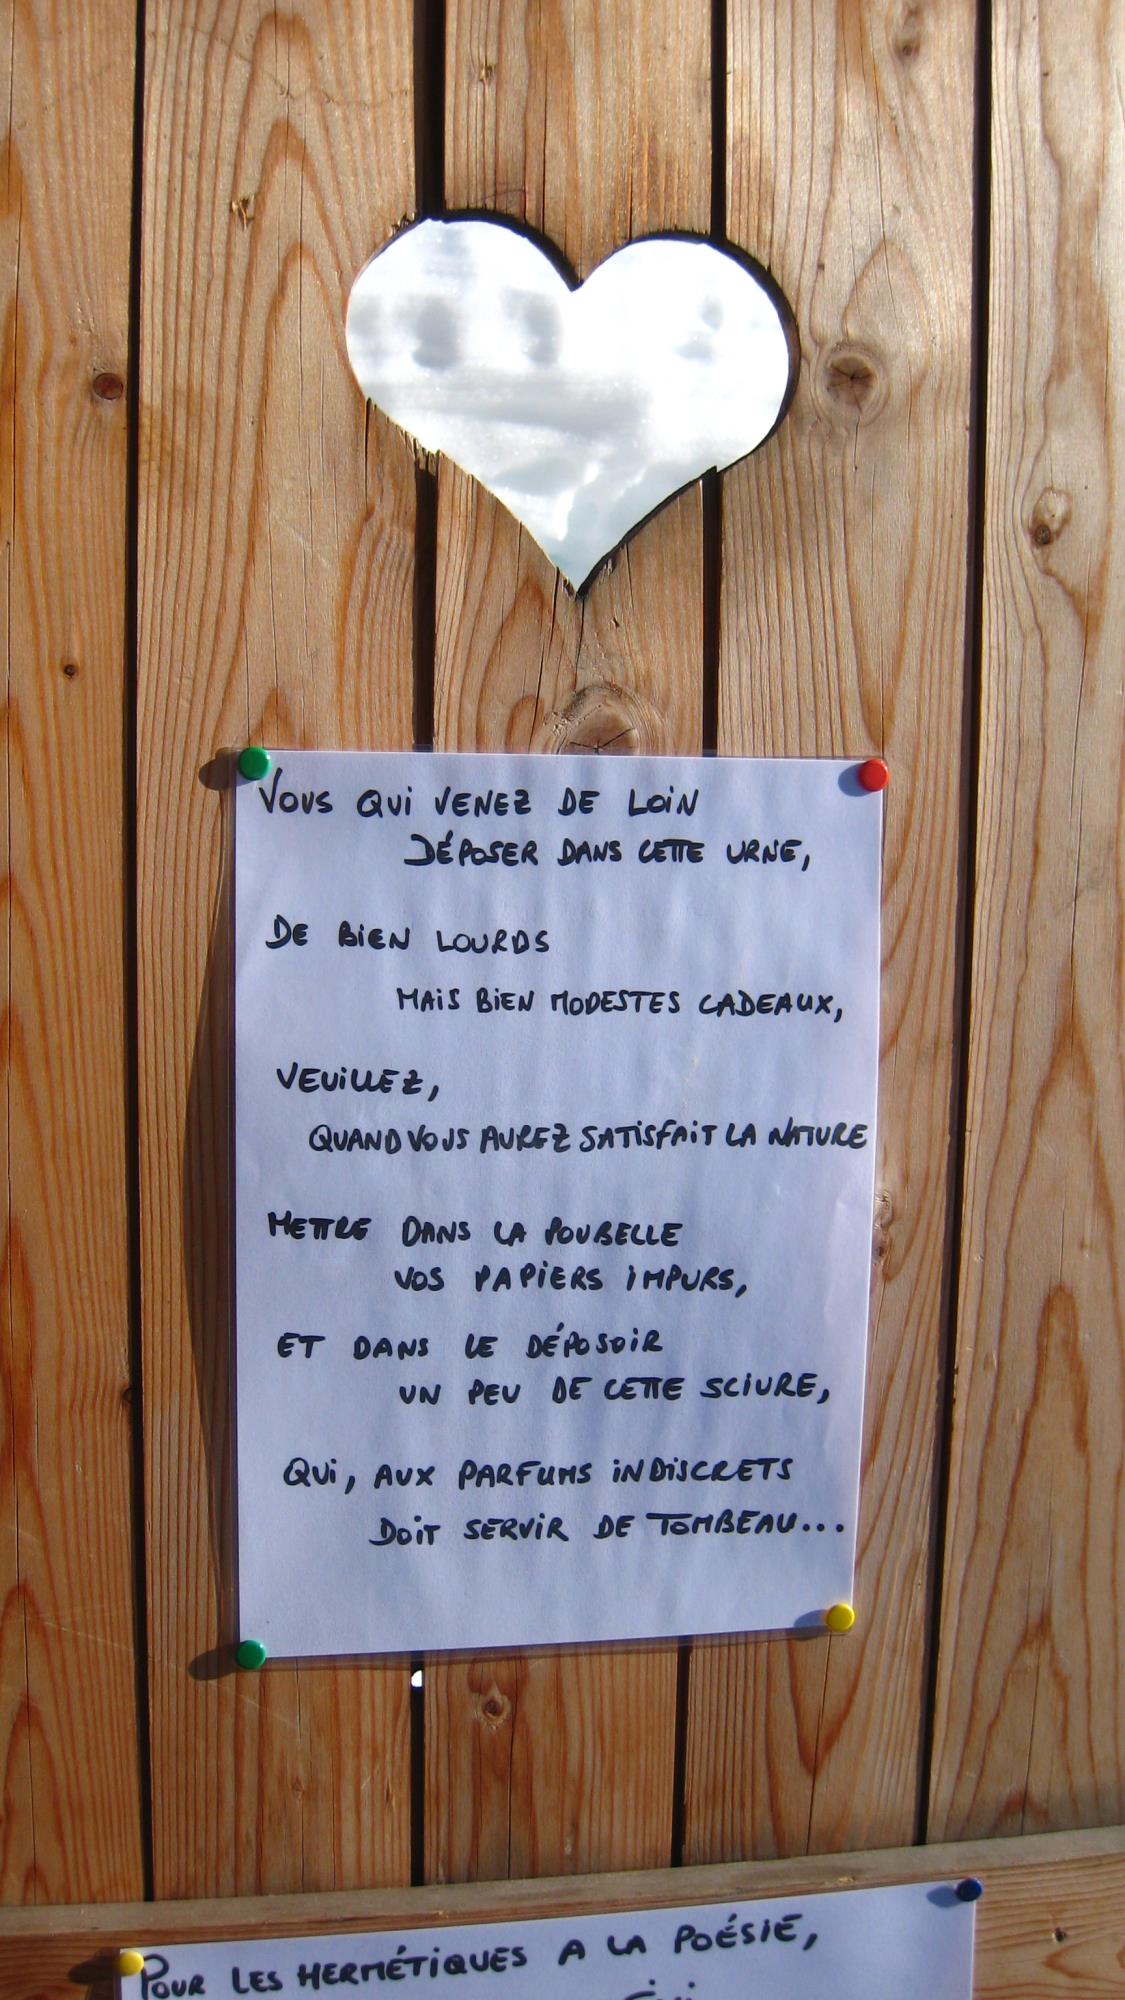 VOUS QUI VENEZ DE LOIN
DÉPOSER DANS CETTE URNE,
DE BIEN LOURDS
MAIS BIEN MODESTES CADEAUX,
VEUILLEZ,
QUAND VOUS AUREZ SATISFAIT LA NATURE
METTRE DANS LA POUBELLE
VOS PAPIERS IMPURS,
ET DANS LE DÉPOSOIR
UN PEU DE CETTE SCIURE,
QUI, AUX PARFUMS INDISCRETS
DOIT SERVIR DE TOMBEAU...
POUR LES HERMÉTIQUES A LA POÉSIE,